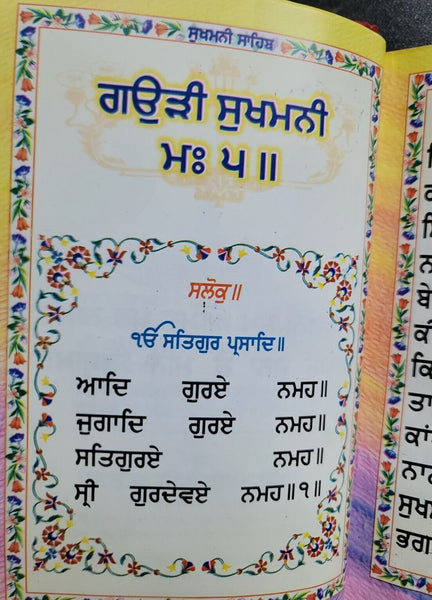 ਸੁਖਮਨੀ ਸਾਹਿਬ
ਗਉੜੀ ਸੁਖਮਨੀ
ਮਃ ੫ ॥
ਸਲੋਕੁ ॥
ੴ ਸਤਿਗੁਰ ਪ੍ਰਸਾਦਿ ॥
ਆਦਿ ਗੁਰਏ ਨਮਹ ॥
ਜੁਗਾਦਿ ਗੁਰਏ ਨਮਹ ॥
ਸਤਿਗੁਰਏ ਨਮਹ ॥
ਸ੍ਰੀ ਗੁਰਦੇਵਏ ਨਮਹ ॥੧॥